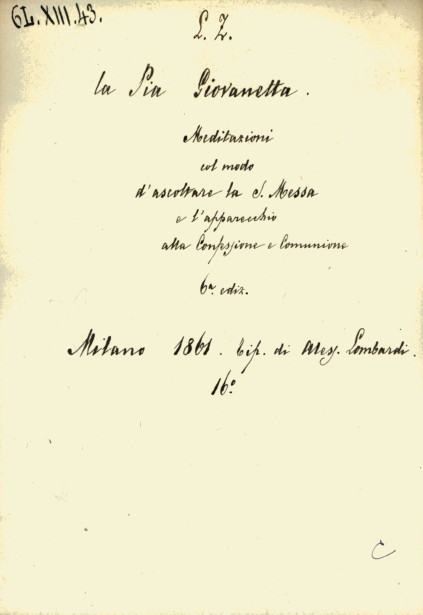 6L.XIII.43.
L. Z.
la Pia Giovanetta.
Meditazioni
col modo
d'ascoltare la S. Messa
e l'apparecchio
alla Confessione e Comunione
6ª ediz.
Milano 1861. Tip. di Aless. Lombardi.
16º
C